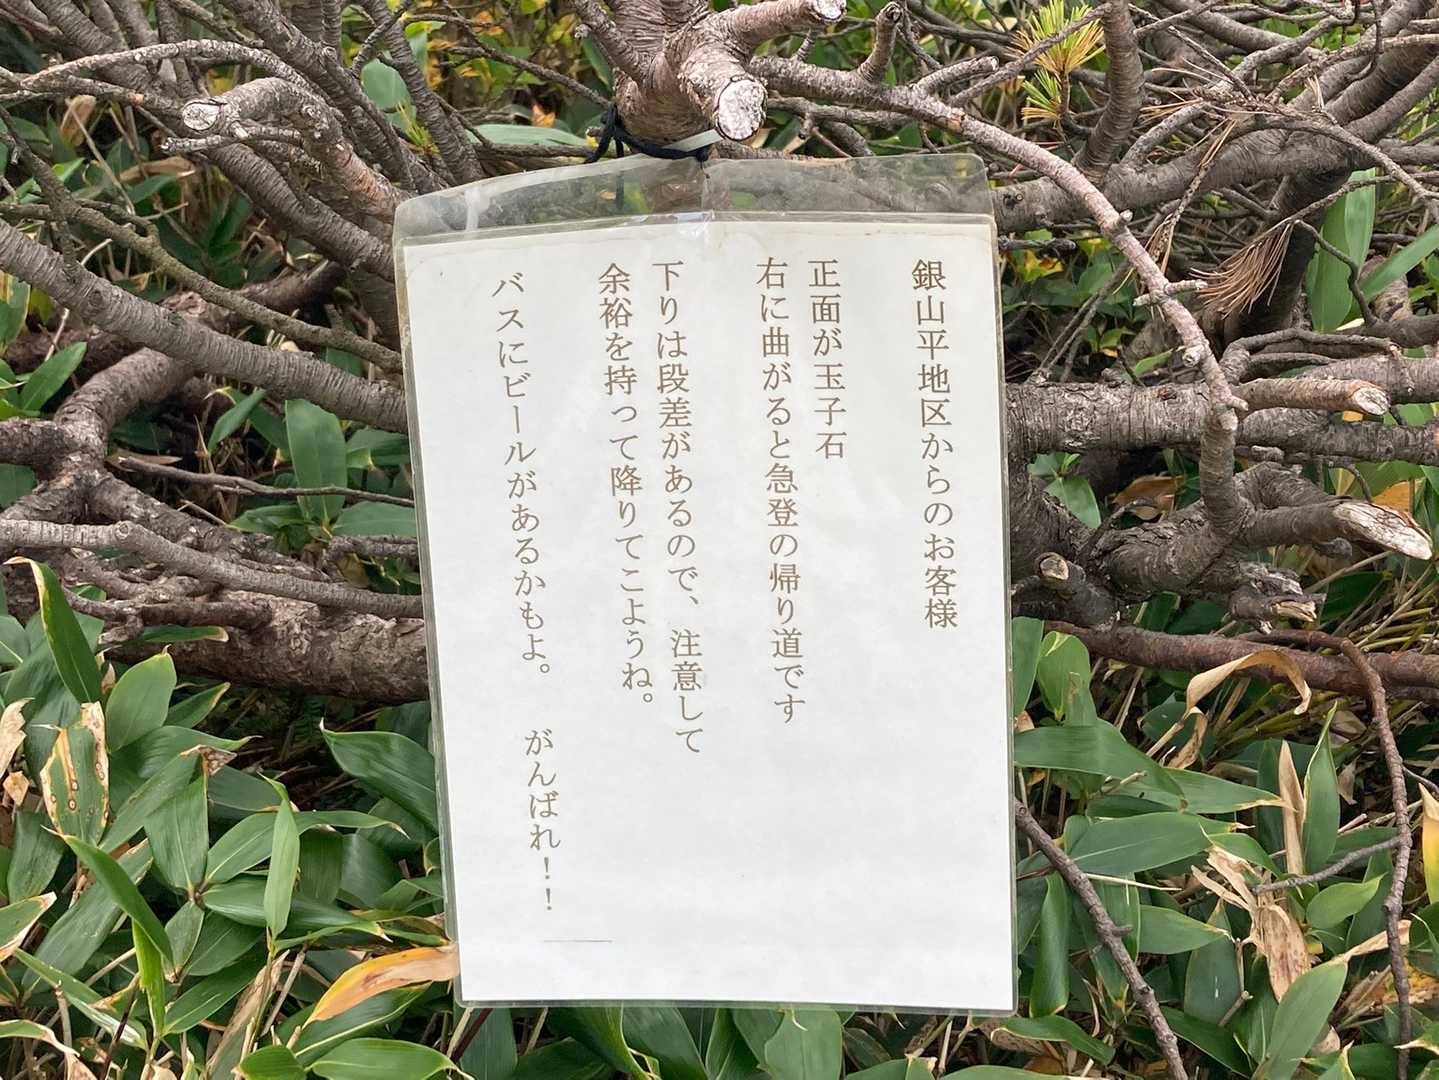 銀山平地区からのお客様
正面が玉子石
右に曲がると急登の帰り道です
下りは段差があるので、注意して
余裕を持って降りてこようね。
バスにビールがあるかもよ。 がんばれ！！